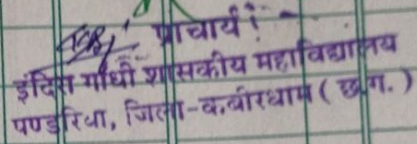 प्राचार्य
इंदिरा गाँधी शासकीय महाविद्यालय
पण्डरिया, जिला-कबीरधाम ( छ.ग. )